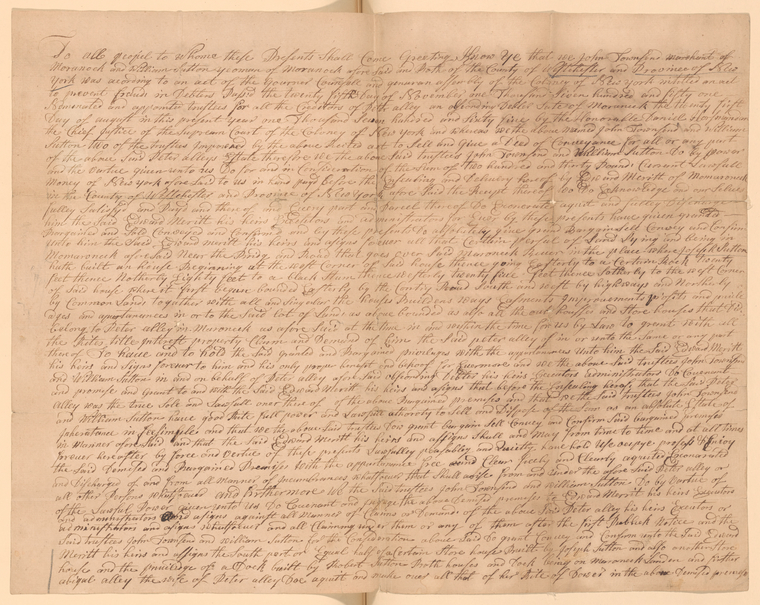 To all people to whome these Presents Shall Come Greeting Know Ye that we John Townsend merchant of
Moroneck and William Sutton yeoman of Moroneck afore Said are Both of the County of Westchester and Province of New
York was acording to an act of the Governor Counsall and general assembly of the Colony of New York intitled an act
to prevent frauds in Debters Pased the twenty fifth Day of November one Thousand Seven hundred and fifty one
Nominated and appointed trustees for all the Creditors of Peter alley an absconding Debtor late of Moroneck the twenty first
Day of august in this present year one Thousand Seven hundred and Sixty five by the Honorable Daniel Horsmanden
the Chief Justice of the Supream Court of the Colony of New York and whereas we the above named John Townsend and William
Sutton two of the trustees Impowred by the above Recited act to Sell and Give a Deed of Conveyance for all or any part
of the above Said Peter alleys Estate therefore we the above Said trustees John Townsend and William Sutton Do by power
and the Vartue given unto us Do for and in Consideration of the sum of two Hundred and forty Pound Corrant Lawfull
Money of New york afore Said to us in hand paid before the Ensealing and Delivery hereof by Edward Merritt of Momaroneck
in the County of Westchester and Province of New York afore Said the Receipt thereof we Do acknowledge and our Selves
fully Satisfyd and Paid and there of and Every Part and Parcel thereof Do Exonerate aquit and fully Discharge
him the Said Edward Merritt his heirs Executors and administrators for Ever by these presents have given granted
Bargained and Sold Conveyed and Confirmed and by these presents Do absolutely give grant Bargain Sell Convey and Confirm
unto him the Said Edward Merritt his heirs and asigns forever all that Certain parsel of Land Lying and being in
Momaroneck afore Said Near the Bridg and Road that goes over Said Moroneck River in the place where Joseph Sutton
hath built an house Begenning at the west Corner of Said house thence going Easterly to a Certain Rock Twenty
feet thence Northerly Eighty feet to a black thorn thence westerly twenty five feet thence Sotherly to the west Corner
of Said house where it first began bounded Easterly by the Contry Road South and west by highways and Northerly
by Common Lands together with all and Singular the houses Buildens ways Easments Improvements Profits and privil
ages and apurtinances in or to the Said Lot of Land as above bounded as also all the out houses and Store houses that Did
belong to Peter alley in Moroneck as afore Said at the time in and within the time for us by Law to grant with all
the Rites title intrest property Claim and Demand of him the Said peter alley of in or unto the Same or any part
thereof To have and to hold the Said granted and Bargained Priviledges with the appurtinances unto him the Said Edward Merritt
his heirs and asigns forever to him and his only proper benefit and behoof for Evermore and we the above Said trustees John Townsend
and William Sutton in and on behalf of Peter alley afore Said absconding Debter his heirs Executors administrators Do Covenant
and promise and Grant to and with the Said Edward Merritt his heirs and asigns that before the Ensealing hereof that the Said Peter
Alley was the true Sole and Lawfull owner of the above Bargained premises and that we the Said trustees John Townsend
and William Sutton have good Rite full power and Lawfull athority to Sell and Dispose of the Same as an absolute Estate of
Inheritance in feesimple and that we the above Said trustees Doe grant bargain Sell Convey and Confirm Said bargained premises
in Manner afore Said and that the Said Edward Merritt his heirs and assigns Shall and May from time to time and at all times
forever hereafter by force and Vertue of these presents Lawfully peasably and Quietly have hold Use ocupye possess and Enjoy
the Said Demised and Bargained Premises with the appurtinances free and Clear freely and Clearly aquited Exonerated
and Discharged of and from all manner of Incumbrances whatsoever that Shall arise from and under the afore Said Peter alley or
all other Persons Whatsoever and Furthermore We the Said trustees John Townsend and William Sutton Do by Vartue of
of the Lawfull Power given unto us Do Covenant and ingage the above Demised premises to Edward Merritt his heirs Executors
and administrators and asigns against all Manner of Claims or Demands of the above Said Peter alley his heirs Executors or
administrators and asigns whatsoever and all Claiming under them or any of them after the first Publick Notice and the
Said trustees John Townsend and William Sutton for the Consideration above Said Do grant Convey and Confirm unto the Said Edward
Merritt his heirs and assigns the South part or Equal half of a Certain Store house Buillt by Joseph Sutton and also another Store
house and the priviledge of a Dock built by Robert Sutton Both houses and Dock being on Moroneck Landen and further
abigal alley the wife of Peter alley Doe aquitt and make over all that of her Rite of Dower in the above Demised premises